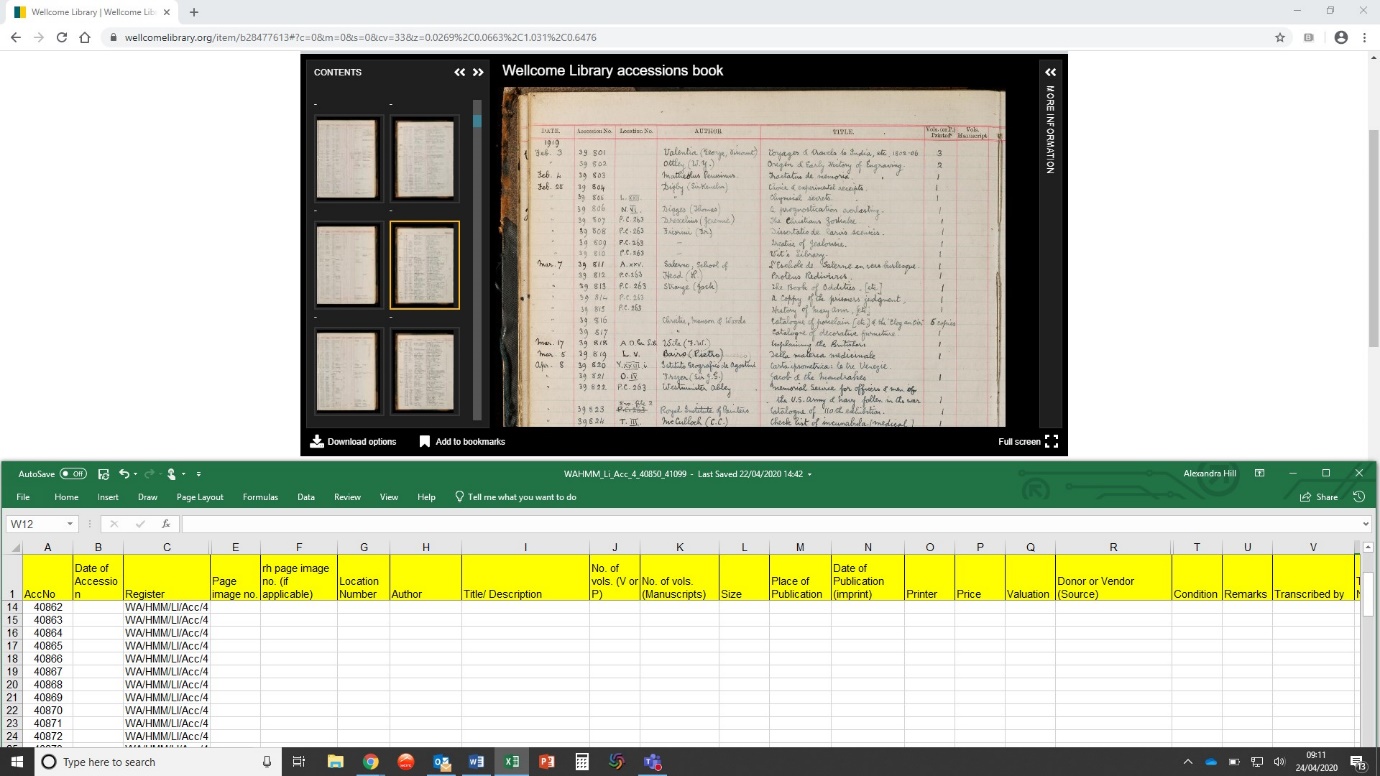 Wellcome Library | Wellcome Lib
wellcomelibrary.org/item/b28477613#?c=0&m=0&s=0&cv=33&z=0.0269%2C0.0663%2C1.031%2C0.6476
CONTENTS
Wellcome Library accessions book
MORE INFORMATION
DATE. Accession No. Location No. AUTHOR TITLE. Vols. Printed Vols. Manuscript
1919
Feb. 3 39 801 Valentia (George, Viscount) Voyages & travels to India, etc, 1802-06 3
" 39 802 Ottley (W.Y.) Origin & Early History of Engraving. 2
Feb. 4 39 803 Tractatus de memoria. 1
Feb. 28 39 804 Digby (Sir Kenelm) Choice & experimental receipts. 1
39 805 L. Chymical secrets. 1
39 806 Digges (Thomas) A prognostication everlasting. 1
39 807 P.C. 263 Drexelius (Jeremie) The Christians Zodiake 1
39 808 P.C. 263 1
39 809 P.C. 263 Treatise of Jealousie. 1
39 810 P.C. 263 Wit's Library. 1
Mar. 7 39 811 A. XXV. Salerno, School of L'Eschole de Salerne en vers burlesque. 1
39 812 P.C. 263 Head (R) Proteus Redivivus. 1
39 813 P.C. 263 Strange (Jack) The Book of Oddities. [etc.] 1
39 814 P.C. 263 A Coppy of the prisoners judgment. 1
39 815 P.C. 263 History of Mary Ann. 1
39 816 Christie, Manson & Woods Catalogue of porcelain [etc.] 5 copies
39 817 " Catalogue of decorative furniture. 1
Mar. 17 39 818 Wile (F.W.) Explaining the Britishers 1
Mar. 5 39 819 L. V. Bairo (Pietro) 1
Apr. 8 39 820 Istituto Geografico de Agostini Carta ipsometrica: le tre Venezie.
39 821 O. IV Frazer (Sir J.G.) Jacob & the mandrakes 1
39 822 P.C. 263 Westminster Abbey Memorial Service for officers & men of
the U.S. Army & Navy fallen in the war 1
39 823 Royal Institute of Painters Catalogue of 110th exhibition. 1
39 824 T. III. McCulloch (C.C.) Check list of incunabula [medical] 1
Download options
Add to bookmarks
Full screen
AutoSave Off
WAHMM_Li_Acc_4_40850_41099 - Last Saved 22/04/2020 14:42
Alexandra Hill
File Home Insert Draw Page Layout Formulas Data Review View Help Tell me what you want to do
Share
W12
fx
A B C E F G H I J K L M N O P Q R T U V
1 AccNo
Date of Accessio n
Register
Page image no.
rh page image no. (if applicable)
Location Number
Author
Title/ Description
No. of vols. (V or P)
No. of vols. (Manuscripts)
Size
Place of Publication
Date of Publication (imprint)
Printer
Price
Valuation
Donor or Vendor (Source)
Condition
Remarks
Transcribed by
14 40862 WA/HMM/LI/Acc/4
15 40863 WA/HMM/LI/Acc/4
16 40864 WA/HMM/LI/Acc/4
17 40865 WA/HMM/LI/Acc/4
18 40866 WA/HMM/LI/Acc/4
19 40867 WA/HMM/LI/Acc/4
20 40868 WA/HMM/LI/Acc/4
21 40869 WA/HMM/LI/Acc/4
22 40870 WA/HMM/LI/Acc/4
23 40871 WA/HMM/LI/Acc/4
24 40872 WA/HMM/LI/Acc/4
Type here to search
09:11
24/04/2020